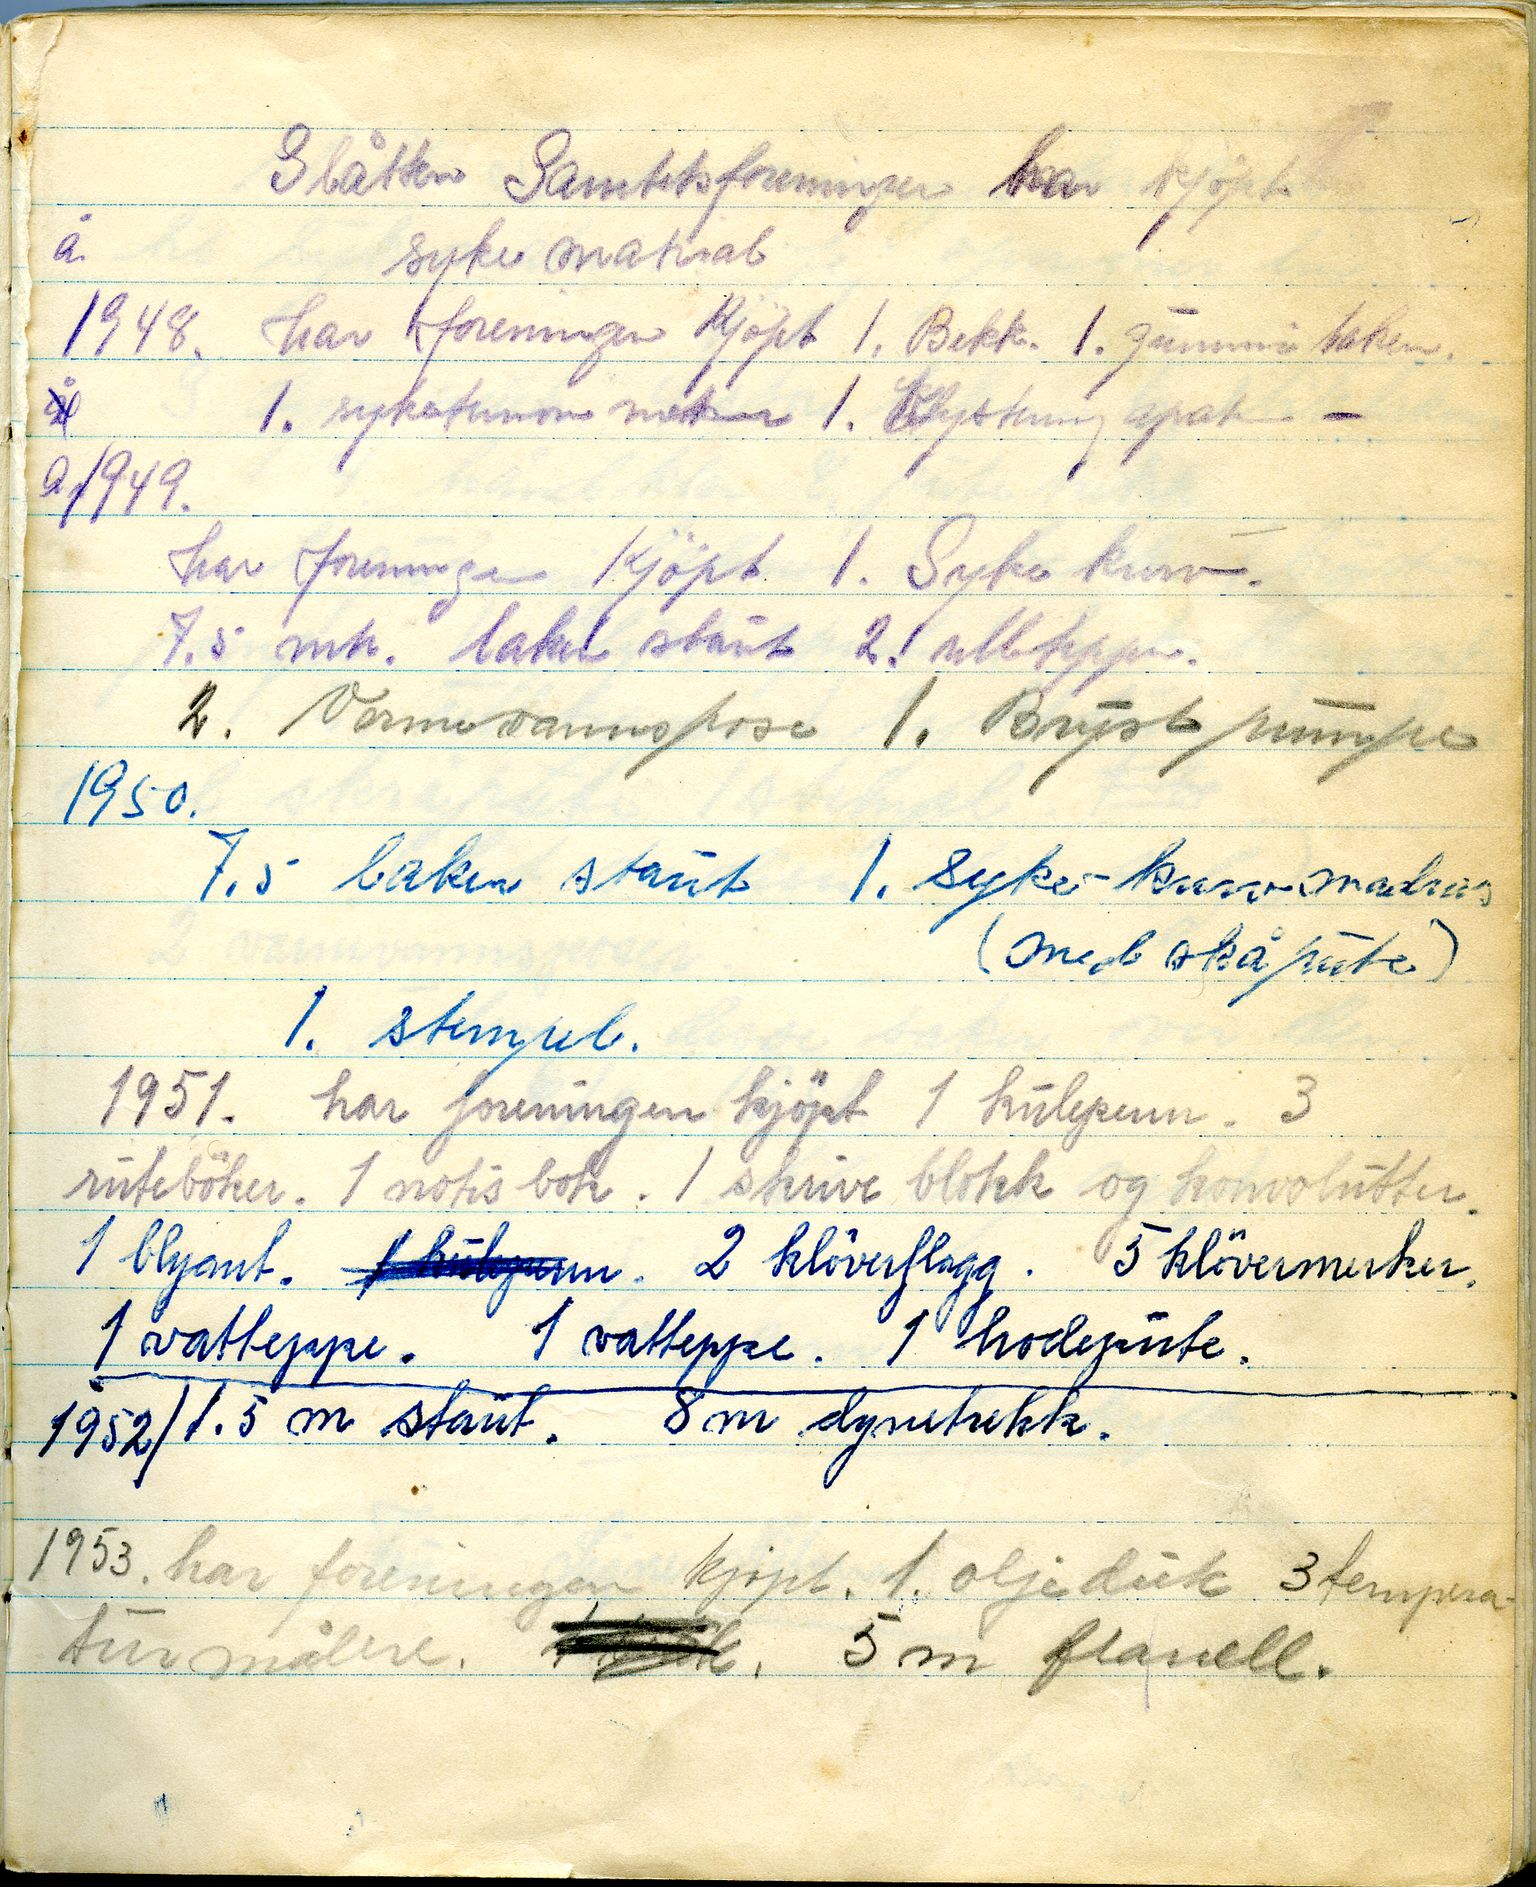 Slåtten Sanitetsforeningen har kjöpt
å. syke matrial
1948. har foreningen Kjöpt 1. Bekk. 1. gümmi laken.
1. syketermometer 1. Klystering apat –
å, 1949.
har foreningen Kjöpt 1. Syke kurv.
7.5 mtr. laken staüt 2. ullteppe.
2. Varmevannspose 1. Bryst pümpe
1950.
7.5 laken staüt 1. syke-kurv-madras
(med skåpüte)
1. stempel.
1951. har foreningen kjöpt 1 külepenn. 3
rüteböker. 1 notis bok. 1 skrive blokk og konvolütter.
1 blyant. 1 külepenn. 2 klöverflagg. 5 klövermerker.
1 vatteppe. 1 vatteppe. 1 hodepüte.
1952/ 1.5 m staüt. 8 m dynetrekk.
1953. har foreningen kjöpt. 1. oljedük 3 tempera-
tür målere. 5 m flanell.